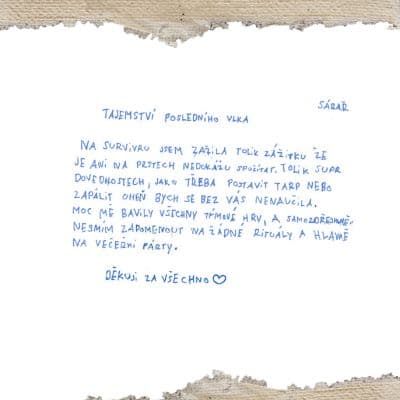 SÁRAŘ
TAJEMSTVÍ POSLEDNÍHO VLKA
NA SURVIVRU JSEM ZAŽILA TOLIK ZÁŽITKU ŽE
JE ANI NA PRSTECH NEDOKÁŽU SPOČÍTAT. TOLIK SUPR
DOVEDNOSTECH, JAKO TŘEBA POSTAVIT TARP NEBO
ZAPÁLIT OHEŇ BYCH SE BEZ VÁS NENAUČILA.
MOC MĚ BAVILY VŠECHNY TÝMOVÉ HRY, A SAMOZDŘEJMNĚ
NESMÍM ZAPOMENOUT NA ŽÁDNÉ RITUÁLY A HLAVNĚ
NA VEČERNÍ PÁRTY.
DĚKUJI ZA VŠECHNO ♡